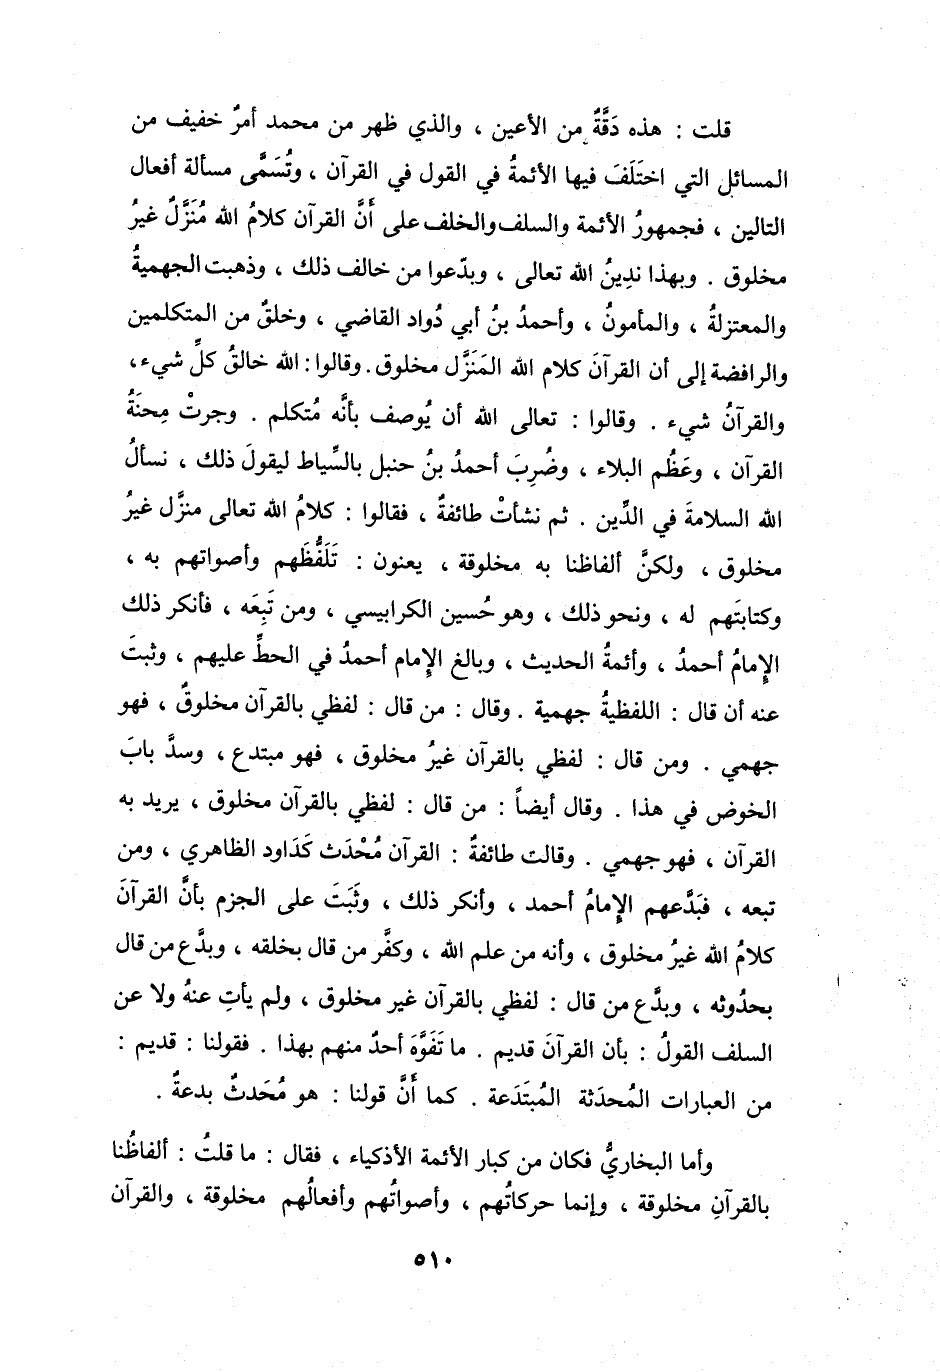 قلت : هذه دَقَّةٌ من الأعين ، والذي ظهر من محمد أمرٌ خفيف من
المسائل التي اختَلَفَ فيها الأئمةُ في القول في القرآن ، وتُسَمَّى مسألة أفعال
التالين ، فجمهورُ الأئمة والسلف والخلف على أَنَّ القرآن كلامُ الله مُنَزَّلٌ غيرُ
مخلوق . وبهذا ندِينُ الله تعالى ، وبدّعوا من خالف ذلك ، وذهبت الجهميةُ
والمعتزلةُ ، والمأمونُ ، وأحمدُ بنُ أبي دُواد القاضي ، وخلقٌ من المتكلمين
والرافضة إلى أن القرآنَ كلام الله المَنَزَّل مخلوق . وقالوا : الله خالقُ كلِّ شيء ،
والقرآنُ شيء . وقالوا : تعالى الله أن يُوصف بأنَّه مُتكلم . وجرتْ مِحنَةُ
القرآن ، وعَظُم البلاء ، وضُرِبَ أحمدُ بنُ حنبل بالسِّياط ليقولَ ذلك ، نسألُ
الله السلامةَ في الدِّين . ثم نشأتْ طائفةٌ ، فقالوا : كلامُ الله تعالى منزَّل غيرُ
مخلوق ، ولكنَّ ألفاظنا به مخلوقة ، يعنون : تَلَفُّظَهم وأصواتهم به ،
وكتابتَهم له ، ونحو ذلك ، وهو حُسين الكرابيسي ، ومن تَبِعَه ، فأنكر ذلك
الإِمامُ أحمدُ ، وأئمةُ الحديث ، وبالغ الإِمام أحمدُ في الحطِّ عليهم ، وثبتَ
عنه أن قال : اللفظيةُ جهمية . وقال : من قال : لفظي بالقرآن مخلوقٌ ، فهو
جهمي . ومن قال : لفظي بالقرآن غيرُ مخلوق ، فهو مبتدع ، وسدَّ بابَ
الخوض في هذا . وقال أيضاً : من قال : لفظي بالقرآن مخلوق ، يريد به
القرآن ، فهو جهمي . وقالت طائفةٌ : القرآن مُحْدَث كَدَاود الظاهري ، ومن
تبعه ، فبَدَّعهم الإِمامُ أحمد ، وأنكر ذلك ، وثَبَتَ على الجزم بأنَّ القرآنَ
كلامُ الله غيرُ مخلوق ، وأنه من علم الله ، وكفَّر من قال بخلقه ، وبدَّع من قال
بحدُوثه ، وبدَّع من قال : لفظي بالقرآن غير مخلوق ، ولم يأتِ عنهُ ولا عن
السلف القولُ : بأن القرآنَ قديم . ما تَفَوَّهَ أحدٌ منهم بهذا . فقولنا : قديم :
من العبارات المُحدَثة المُبتَدَعة . كما أَنَّ قولنا : هو مُحَدثٌ بدعةٌ .
وأما البخاريُّ فكان من كبار الأئمة الأذكياء ، فقال : ما قلتُ : ألفاظُنا
بالقرآنِ مخلوقة ، وإنما حركاتُهم ، وأصواتُهم وأفعالُهم مخلوقة ، والقرآن
٥١٠